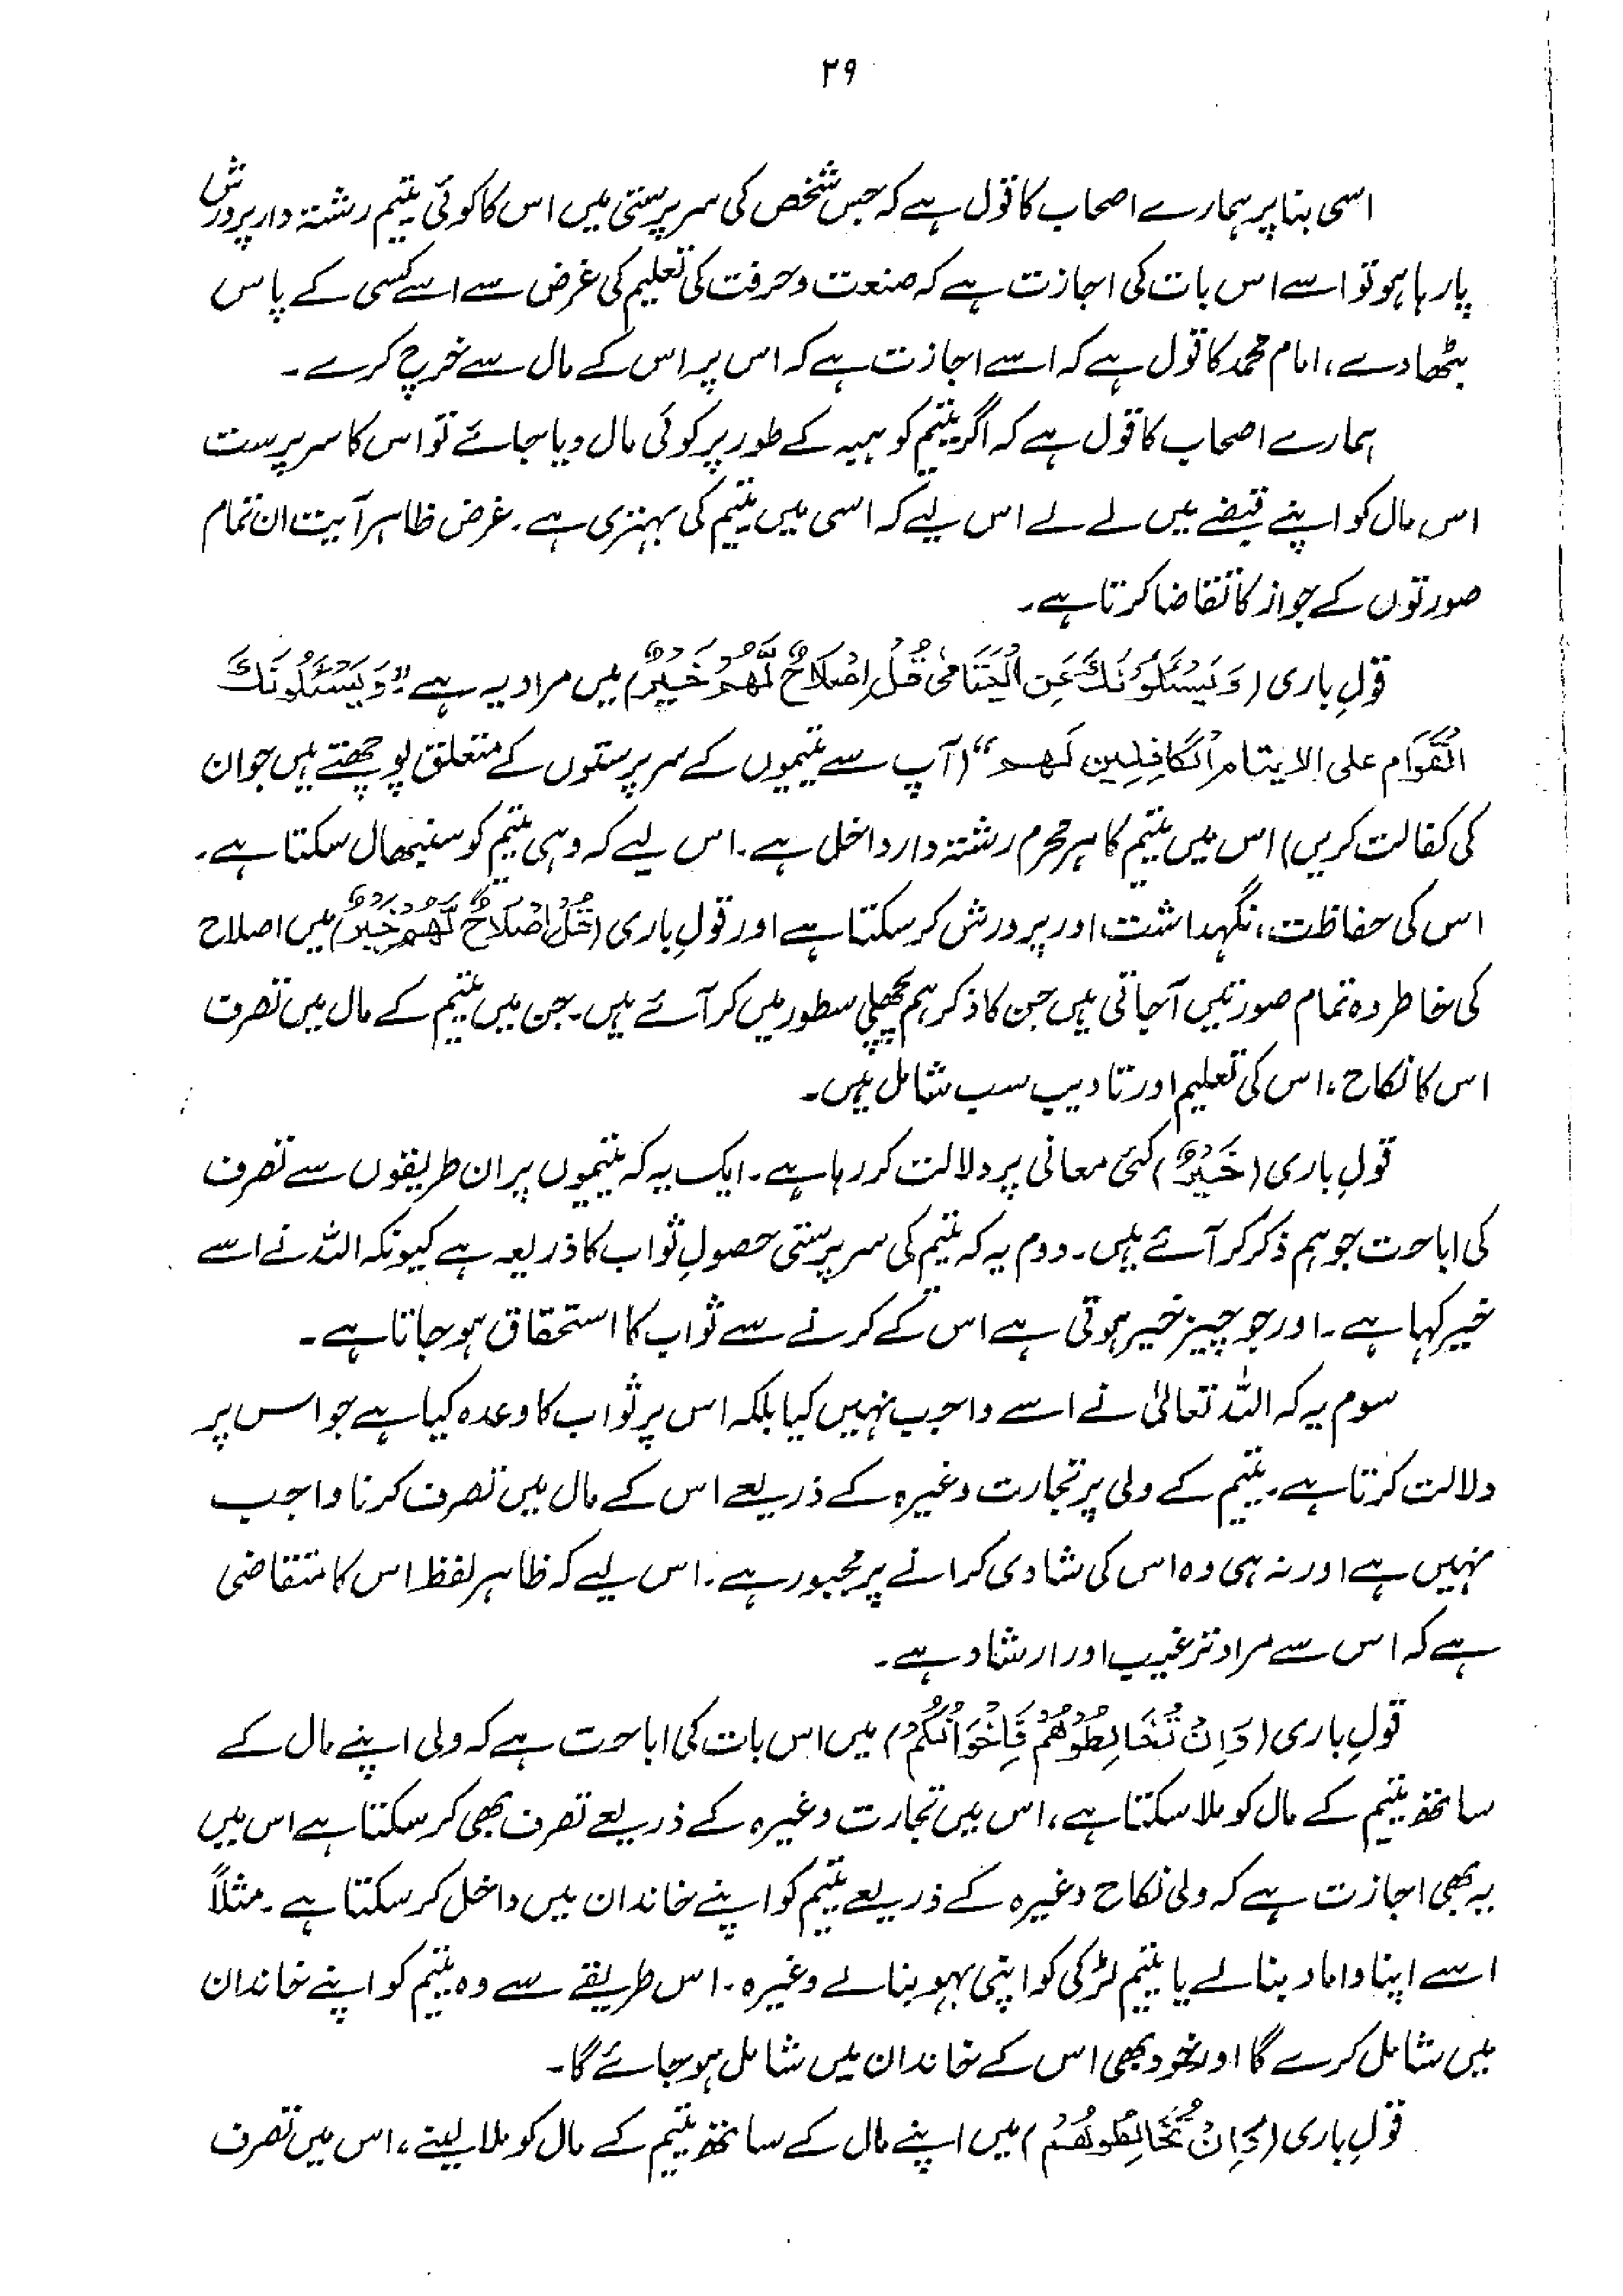 ۲۹
اسی بنا پر ہمارے اصحاب کا قول ہے کہ جس شخص کی سرپرستی میں اس کا کوئی یتیم رشتہ دار پرورش
پا رہا ہو تو اسے اس بات کی اجازت ہے کہ صنعت و حرفت کی تعلیم کی غرض سے اسے کسی کے پاس
بٹھا دے، امام محمد کا قول ہے کہ اسے اجازت ہے کہ اس پر اس کے مال سے خرچ کرے۔
ہمارے اصحاب کا قول ہے کہ اگر یتیم کو ہبہ کے طور پر کوئی مال دیا جائے تو اس کا سرپرست
اس مال کو اپنے قبضے میں لے لے اس لیے کہ اسی میں یتیم کی بہتری ہے۔ غرض ظاہر آیت ان تمام
صورتوں کے جواز کا تقاضا کرتا ہے۔
قولِ باری (وَيَسْئَلُوْنَكَ عَنِ الْيَتَامٰى قُلْ اِصْلَاحٌ لَّهُمْ خَيْرٌ) میں مراد یہ ہے "وَيَسْئَلُونَكَ
الْقَوَّام علی الایتام الْكَافِلِین لَهم" (آپ سے یتیموں کے سرپرستوں کے متعلق پوچھتے ہیں جو ان
کی کفالت کریں) اس میں یتیم کا ہر محرم رشتہ دار داخل ہے۔ اس لیے کہ وہی یتیم کو سنبھال سکتا ہے۔
اس کی حفاظت، نگہداشت اور پرورش کر سکتا ہے اور قولِ باری (قُلْ اِصْلَاحٌ لَّهُمْ خَيْرٌ) میں اصلاح
کی خاطر وہ تمام صورتیں آ جاتی ہیں جن کا ذکر ہم پچھلی سطور میں کر آئے ہیں۔ جن میں یتیم کے مال میں تصرف
اس کا نکاح، اس کی تعلیم اور تادیب سب شامل ہیں۔
قولِ باری (خَيْرٌ) کئی معانی پر دلالت کر رہا ہے۔ ایک یہ کہ یتیموں پر ان طریقوں سے تصرف
کی اباحت جو ہم ذکر کر آئے ہیں۔ دوم یہ کہ یتیم کی سرپرستی حصولِ ثواب کا ذریعہ ہے کیونکہ اللہ نے اسے
خیر کہا ہے۔ اور جو چیز خیر ہوتی ہے اس کے کرنے سے ثواب کا استحقاق ہو جاتا ہے۔
سوم یہ کہ اللہ تعالیٰ نے اسے واجب نہیں کیا بلکہ اس پر ثواب کا وعدہ کیا ہے جو اس پر
دلالت کرتا ہے۔ یتیم کے ولی پر تجارت وغیرہ کے ذریعے اس کے مال میں تصرف کرنا واجب
نہیں ہے اور نہ ہی وہ اس کی شادی کرانے پر مجبور ہے۔ اس لیے کہ ظاہر لفظ اس کا متقاضی
ہے کہ اس سے مراد ترغیب اور ارشاد ہے۔
قولِ باری (وَاِنْ تُخَالِطُوْهُمْ فَاِخْوَانُكُمْ) میں اس بات کی اباحت ہے کہ ولی اپنے مال کے
ساتھ یتیم کے مال کو ملا سکتا ہے، اس میں تجارت وغیرہ کے ذریعے تصرف بھی کر سکتا ہے اس میں
یہ بھی اجازت ہے کہ ولی نکاح وغیرہ کے ذریعے یتیم کو اپنے خاندان میں داخل کر سکتا ہے۔ مثلاً
اسے اپنا داماد بنا لے یا یتیم لڑکی کو اپنی بہو بنا لے وغیرہ۔ اس طریقے سے وہ یتیم کو اپنے خاندان
میں شامل کرے گا اور خود بھی اس کے خاندان میں شامل ہو جائے گا۔
قولِ باری (وَاِنْ تُخَالِطُوهُمْ) میں اپنے مال کے ساتھ یتیم کے مال کو ملا لینے، اس میں تصرف